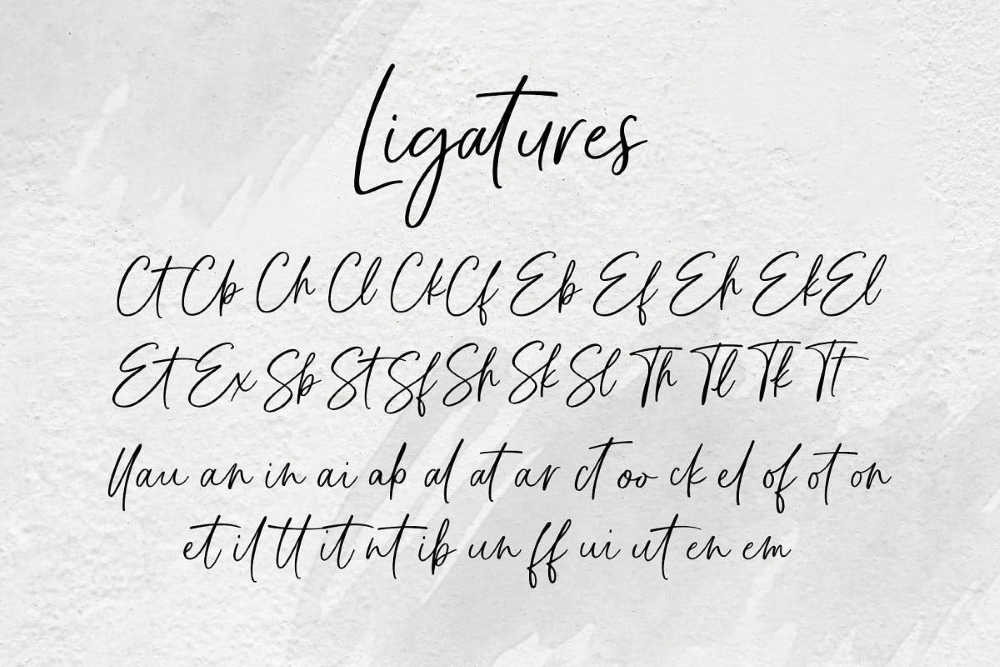 Ligatures
Ct Cb Ch Cl Ck Cf Eb Ef Eh Ek El
Et Ex Sb St Sf Sh Sk Sl Th Tl Tk Tt
an in ai ab al at ar ct oo ck el of ot on
et il tt it nt ib un ff ui ut en em